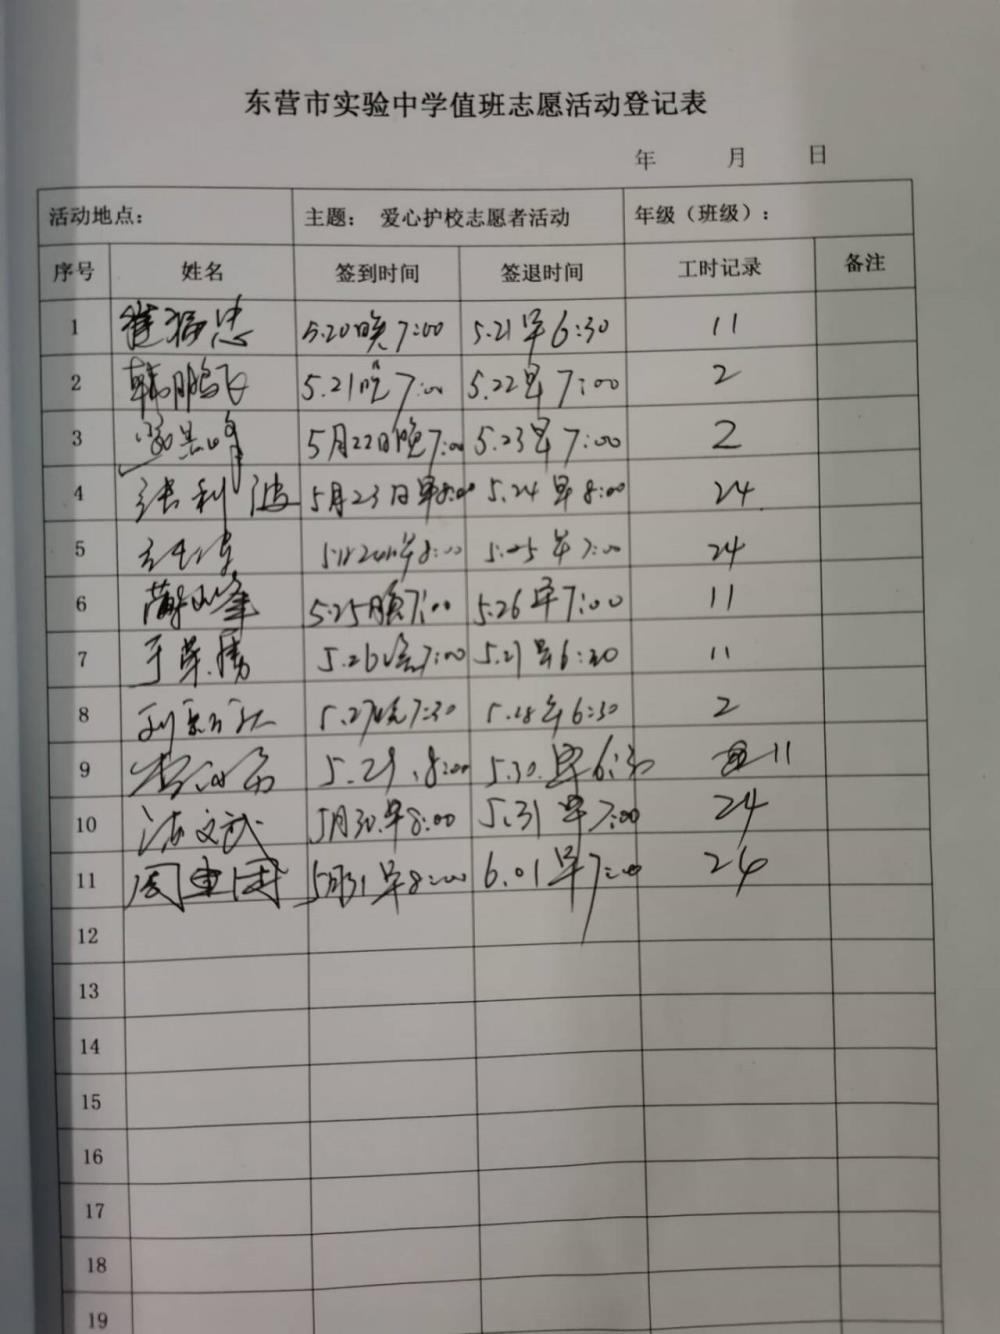 东营市实验中学值班志愿活动登记表
年 月 日
活动地点: 主题: 爱心护校志愿者活动 年级（班级）:
序号 姓名 签到时间 签退时间 工时记录 备注
1 崔福忠 5.20晚7:00 5.21早6:30 11
2 韩鹏飞 5.21晚7:00 5.22早7:00 2
3 5月22日晚7:00 5.23早7:00 2
4 张利波 5月23日早8:00 5.24早8:00 24
5 8:00 5.25早7:00 24
6 5.25晚7:00 5.26早7:00 11
7 于荣勇 5.26晚7:00 5.27早6:30 11
8 5.27晚7:30 5.28早6:30 2
9 5.29.8:00 5.30.早6:30 11
10 文武 5月30.早8:00 5.31早7:00 24
11 周重国 5月31早8:00 6.01早7:00 24
12
13
14
15
16
17
18
19